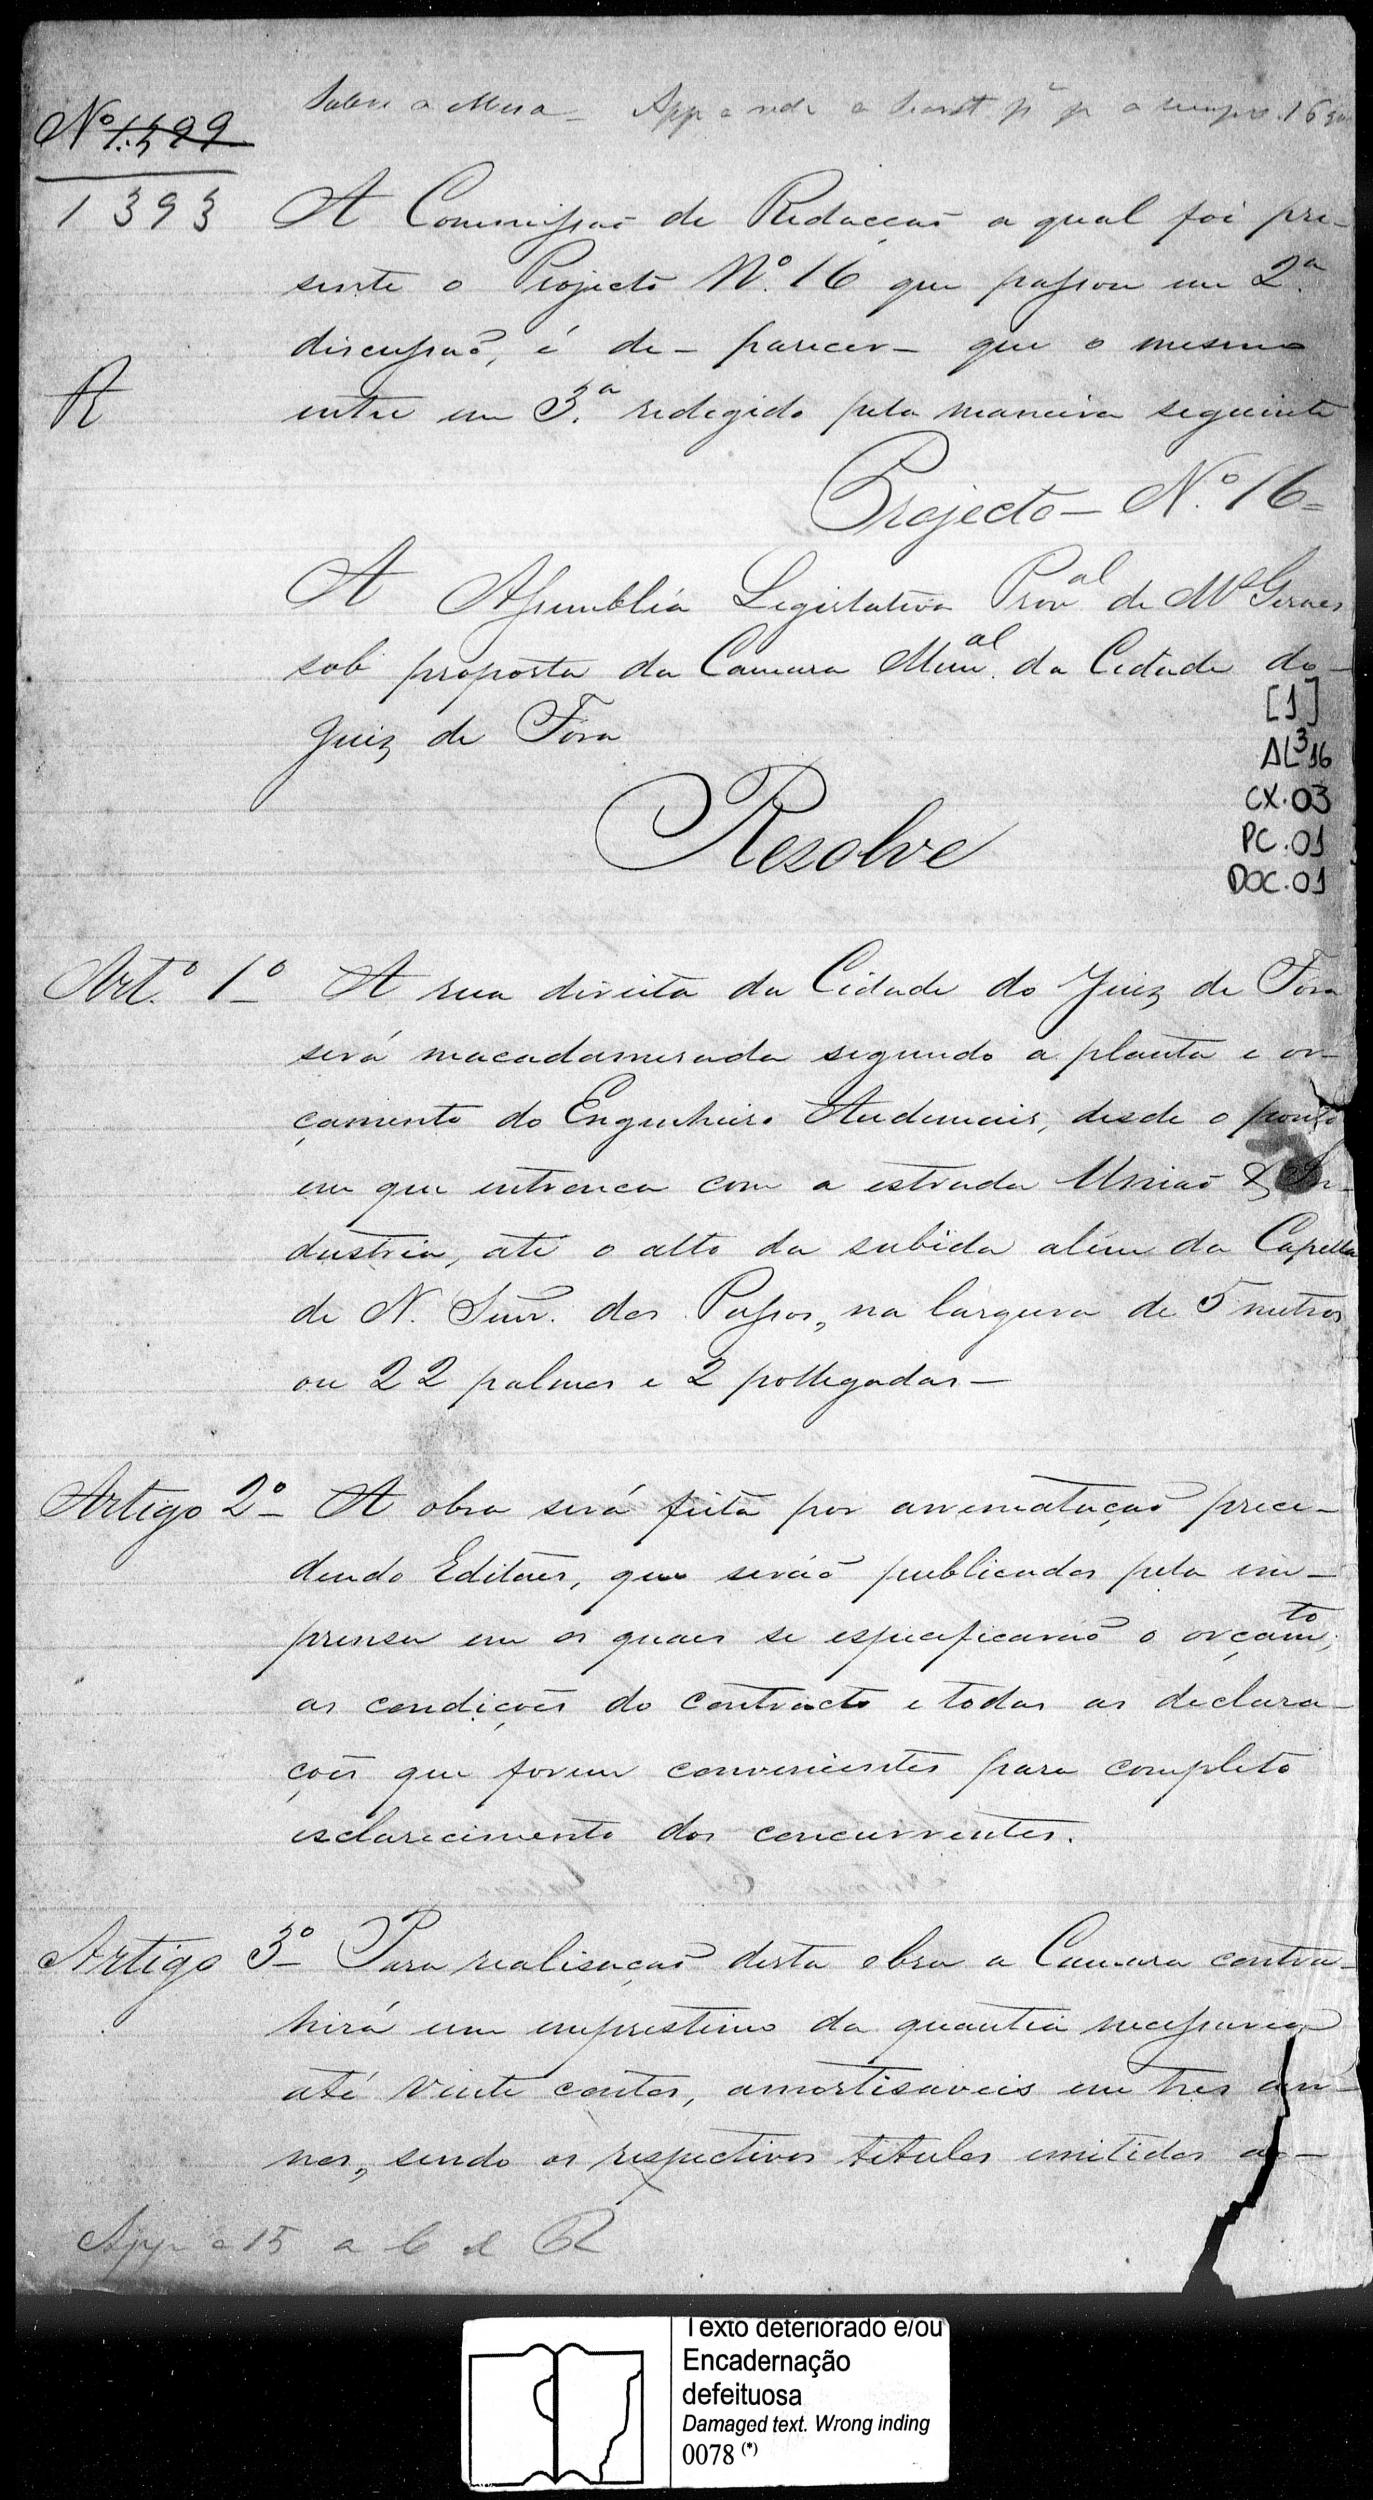 Sobre a Mesa – App a red
Nº 1:399
1393
A Commissaõ de Redacçaõ a qual foi pre-
sente o Projecto Nº. 16 que passou em 2.ª
discussaõ, é de – parecer – que o mesmo
R
entre em 3.ª redegido pela maneira seguinte
Projecto – Nº. 16 =
A Assembléa Legislativa Prov.al de Mas Geraes
sob proposta da Camara Mun.al da Cidade do
Juiz de Fóra
[1]
AL³16
CX.03
PC.01
DOC.01
Resolve
Art.º 1º A rua direita da Cidade do Juiz de Fóra
será macadamerada segundo a planta e or-
çamento do Engenheiro Audemais, desde o ponto
em que entronca com a estrada Uniaõ & In-
dustria, até o alto da subida alem da Capella
de N. Snr. dos Passos, na largura de 5 metros
ou 22 palmos e 2 pollegadas –
Artigo 2º A obra será feita por arrematacaõ prece-
dendo Editaes, que seraõ publicados pela im-
prensa em os quaes se especificaraõ o orçam.to,
as condiçoẽs do contracto e todas as declara-
çoẽs que forem convenientes para completo
esclarecimento dos concurrentes.
Artigo 3º Para realisaçaõ desta obra a Camara contra-
hirá um emprestimo da quantia necessaria
até vinte contos, amortisaveis em tres an-
nos, sendo os respectivos titulos emitidos ao –
App a 15 a C d R
Texto deteriorado e/ou
Encadernação
defeituosa
Damaged text. Wrong inding
0078 (*)